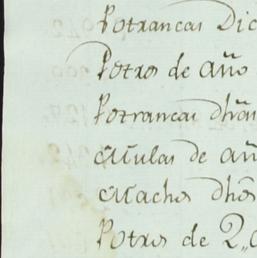 Potrancas Dic
Potros de año
Potrancas dhas
Mulas de añ
Machos dhos
Potros de 2,,